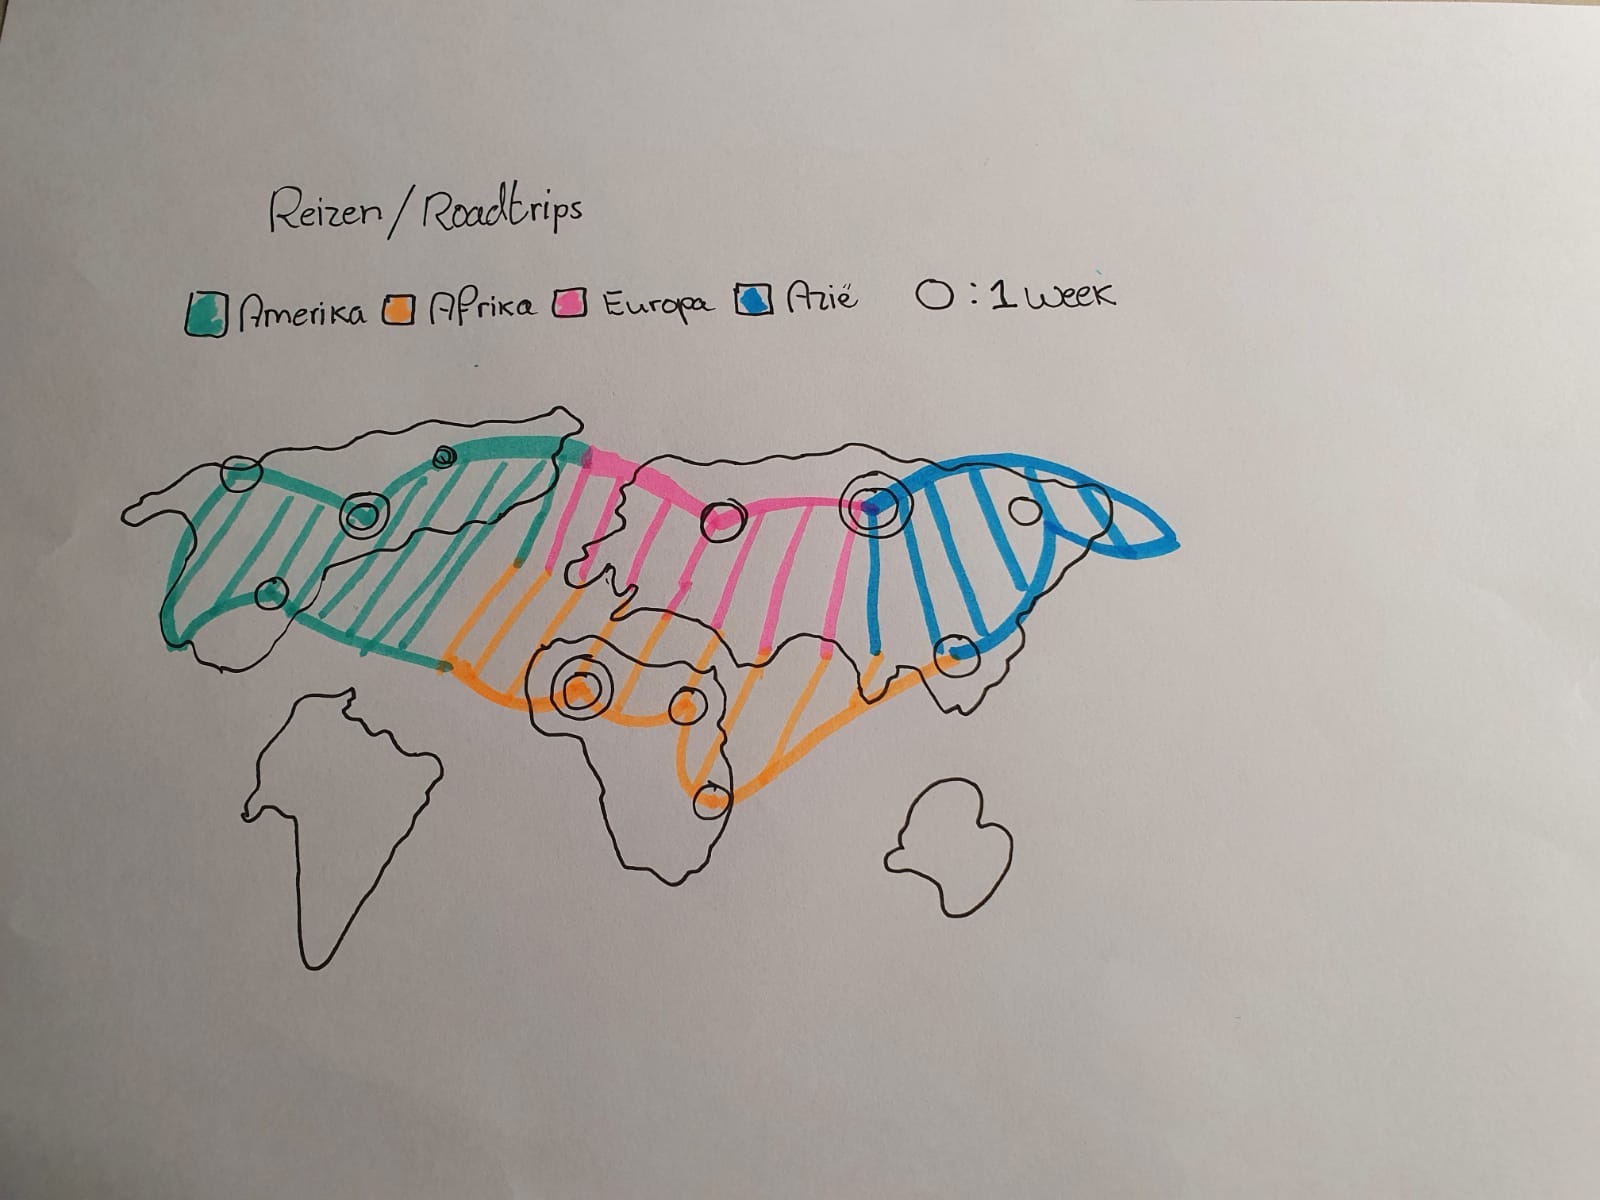 Reizen/Roadtrips
Amerika Afrika Europa Azië O: 1 week